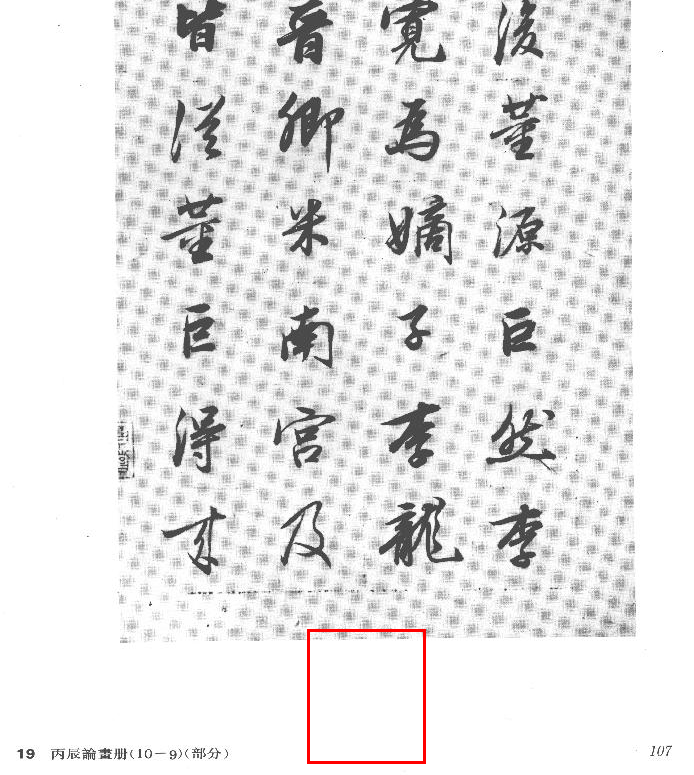 後董源巨然李
寬為嫡子李龍
晉卿米南宮及
皆從董巨得來
19 丙辰論畫册(10－9)(部分)
107